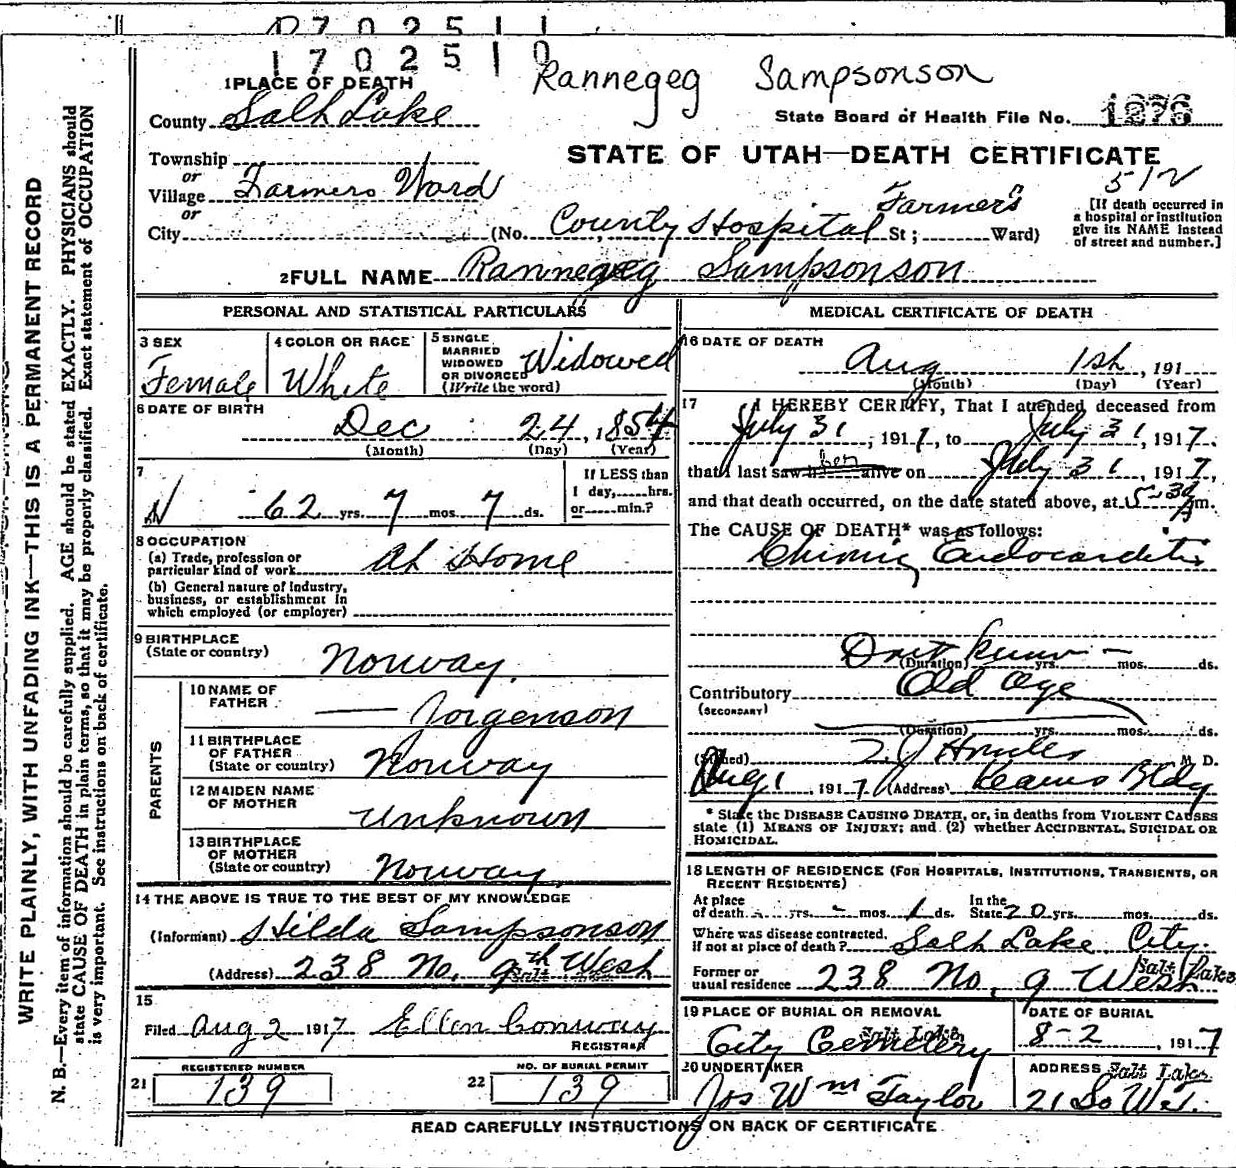 1702511
1702510
Rannegeg Sampsonson
1 PLACE OF DEATH
County Salt Lake
State Board of Health File No. 1276
Township
or
Village Farmers Ward
or
City
STATE OF UTAH—DEATH CERTIFICATE
512
Farmer's
(No. County Hospital St; Ward)
[If death occurred in
a hospital or institution
give its NAME instead
of street and number.]
2 FULL NAME Rannegeg Sampsonson
PERSONAL AND STATISTICAL PARTICULARS
3 SEX
Female
4 COLOR OR RACE
White
5 SINGLE
MARRIED
WIDOWED
OR DIVORCED
(Write the word)
Widowed
6 DATE OF BIRTH
Dec 24, 1854
(Month) (Day) (Year)
7
62 yrs. 7 mos. 7 ds.
If LESS than
1 day,......hrs.
or......min.?
8 OCCUPATION
(a) Trade, profession or
particular kind of work At Home
(b) General nature of industry,
business, or establishment in
which employed (or employer)
9 BIRTHPLACE
(State or country) Norway.
PARENTS
10 NAME OF
FATHER — Jorgenson
11 BIRTHPLACE
OF FATHER
(State or country) Norway
12 MAIDEN NAME
OF MOTHER Unknown
13 BIRTHPLACE
OF MOTHER
(State or country) Norway
14 THE ABOVE IS TRUE TO THE BEST OF MY KNOWLEDGE
(Informant) Hilda Sampsonson
(Address) 238 No. 9th West
15
Filed Aug 2 1917 Ellen Conway
REGISTRAR
REGISTERED NUMBER
21 139
NO. OF BURIAL PERMIT
22 139
MEDICAL CERTIFICATE OF DEATH
16 DATE OF DEATH
Aug 1st, 191
(Month) (Day) (Year)
17 I HEREBY CERTIFY, That I attended deceased from
July 31, 1917, to July 31, 1917.
that I last saw her alive on July 31, 1917,
and that death occurred, on the date stated above, at 5-30 A m.
The CAUSE OF DEATH* was as follows:
Chronic Endocarditis
Dont know —
(Duration) yrs. mos. ds.
Contributory Old Age
(SECONDARY)
(Duration) yrs. mos. ds.
(Signed) M. D.
Aug 1 1917 (Address) Kearns Bldg
* State the DISEASE CAUSING DEATH, or, in deaths from VIOLENT CAUSES
state (1) MEANS OF INJURY; and (2) whether ACCIDENTAL, SUICIDAL OR
HOMICIDAL.
18 LENGTH OF RESIDENCE (FOR HOSPITALS, INSTITUTIONS, TRANSIENTS, OR
RECENT RESIDENTS)
At place
of death - yrs. - mos. 1 ds. In the
State 20 yrs. mos. ds.
Where was disease contracted,
if not at place of death? Salt Lake City.
Former or
usual residence 238 No. 9 West Salt Lake
19 PLACE OF BURIAL OR REMOVAL
City Cemetery Salt Lake
DATE OF BURIAL
8-2, 1917
20 UNDERTAKER
Jos Wm Taylor
ADDRESS Salt Lake
21 So W.T.
READ CAREFULLY INSTRUCTIONS ON BACK OF CERTIFICATE
WRITE PLAINLY, WITH UNFADING INK—THIS IS A PERMANENT RECORD
N. B.—Every item of information should be carefully supplied. AGE should be stated EXACTLY. PHYSICIANS should
state CAUSE OF DEATH in plain terms, so that it may be properly classified. Exact statement of OCCUPATION
is very important. See instructions on back of certificate.